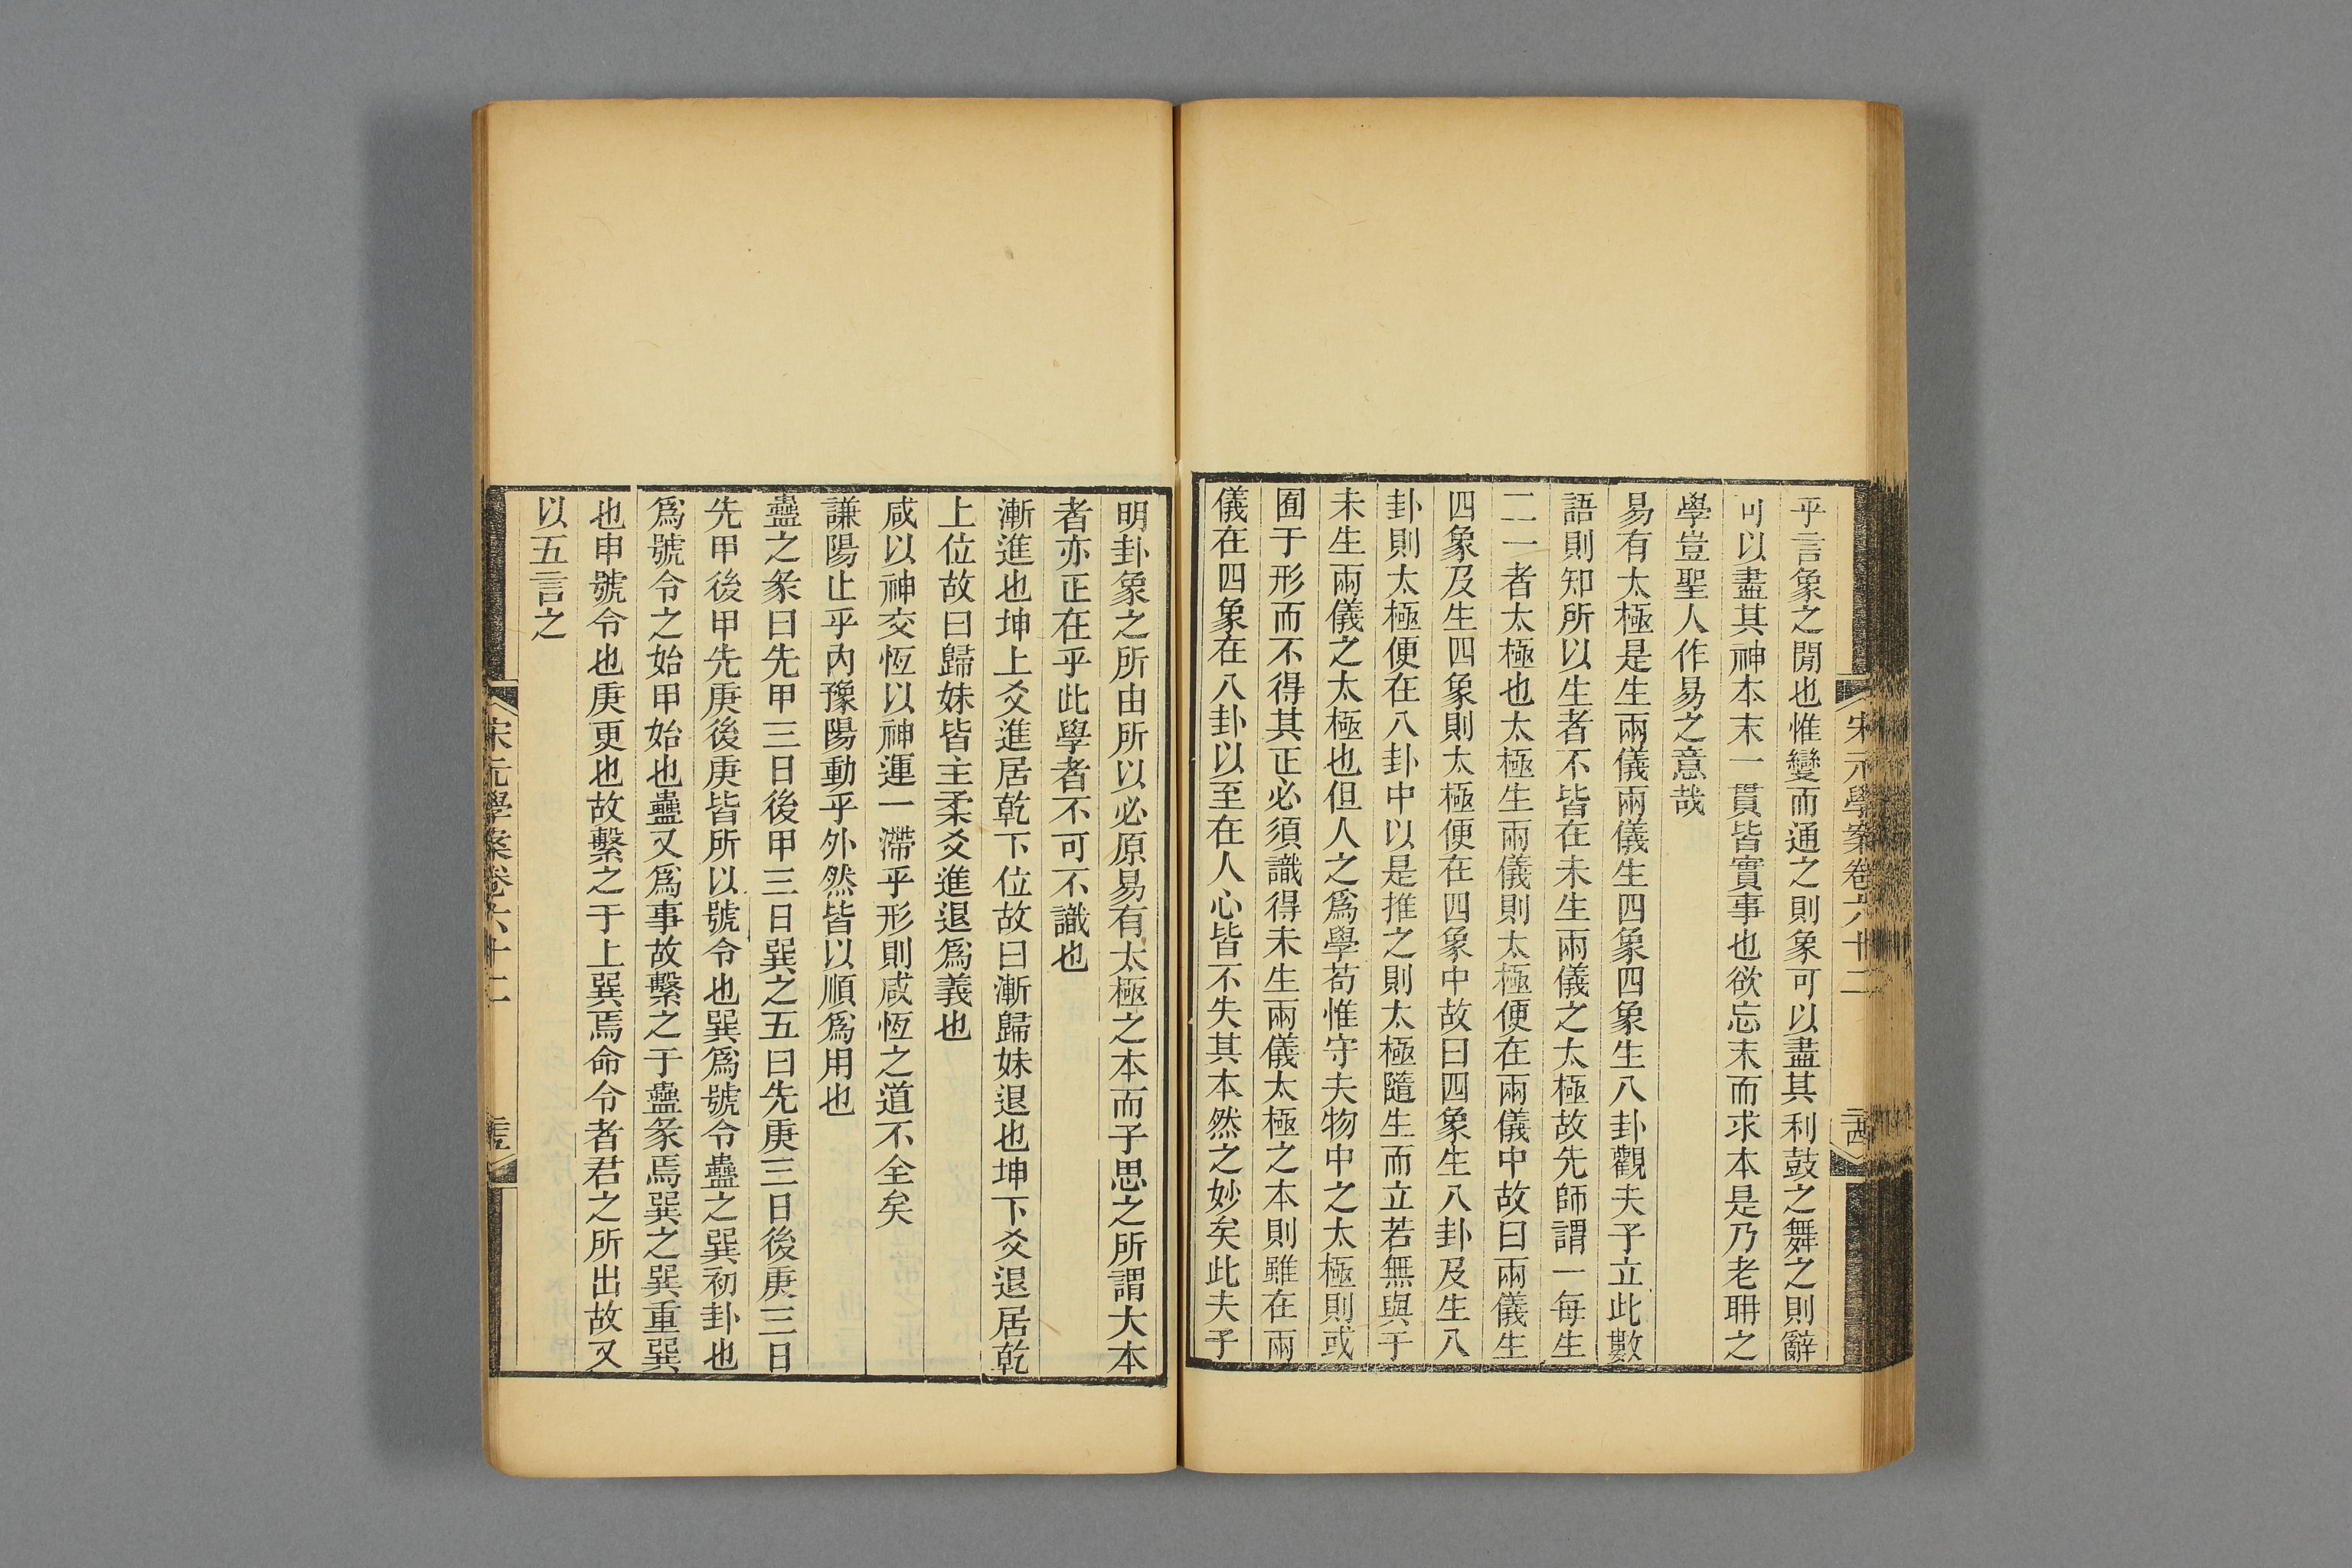 宋元學案卷六十二
西
乎言象之閒也惟變而通之則象可以盡其利鼓之舞之則辭
可以盡其神本末一貫皆實事也欲忘末而求本是乃老聃之
學豈聖人作易之意哉
易有太極是生兩儀兩儀生四象四象生八卦觀夫子立此數
語則知所以生者不皆在未生兩儀之太極故先師謂一每生
二一者太極也太極生兩儀則太極便在兩儀中故曰兩儀生
四象及生四象則太極便在四象中故曰四象生八卦及生八
卦則太極便在八卦中以是推之則太極隨生而立若無與于
未生兩儀之太極也但人之爲學苟惟守夫物中之太極則或
囿于形而不得其正必須識得未生兩儀太極之本則雖在兩
儀在四象在八卦以至在人心皆不失其本然之妙矣此夫子
明卦象之所由所以必原易有太極之本而子思之所謂大本
者亦正在乎此學者不可不識也
漸進也坤上爻進居乾下位故曰漸歸妹退也坤下爻退居乾
上位故曰歸妹皆主柔爻進退爲義也
咸以神交恆以神運一滯乎形則咸恆之道不全矣
謙陽止乎內豫陽動乎外然皆以順爲用也
蠱之彖曰先甲三日後甲三日巽之五曰先庚三日後庚三日
先甲後甲先庚後庚皆所以號令也巽爲號令蠱之巽初卦也
爲號令之始甲始也蠱又爲事故繫之于蠱彖焉巽之巽重巽
也申號令也庚更也故繫之于上巽焉命令者君之所出故又
以五言之
宋元學案卷六十二